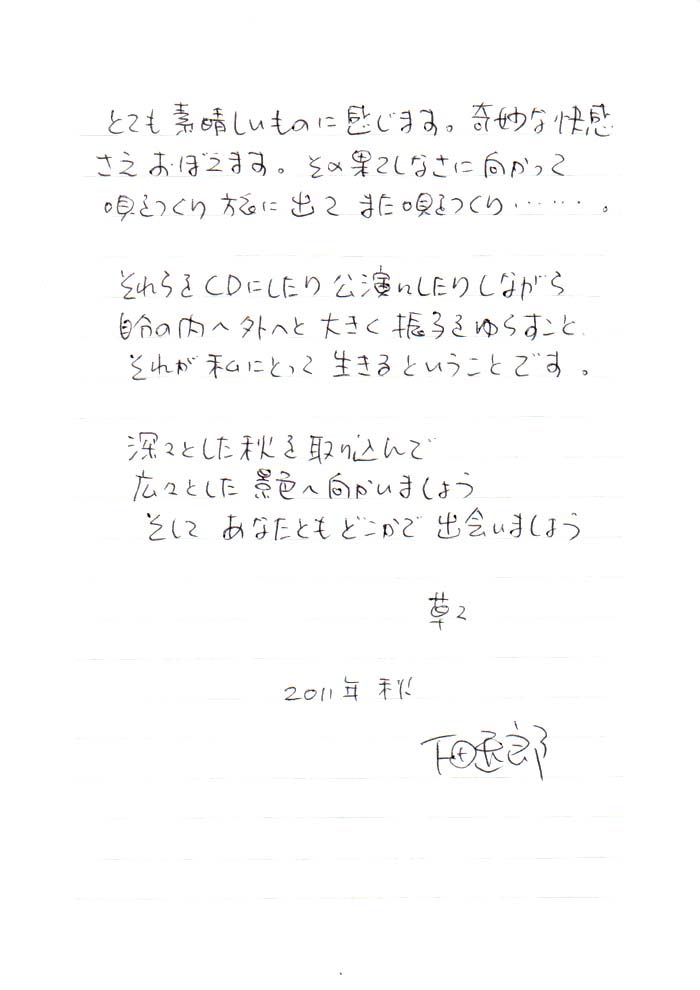 とても素晴しいものに感じます。奇妙な快感
さえおぼえます。その果てしなさに向かって
唄をつくり旅に出て また唄をつくり……。
それらをCDにしたり公演にしたりしながら
自分の内へ外へと大きく振子をゆらすこと
それが私にとって生きるということです。
深々とした秋を取り込んで
広々とした景色へ向かいましょう
そして あなたともどこかで出会いましょう
草々
2011年 秋
下田逸郎